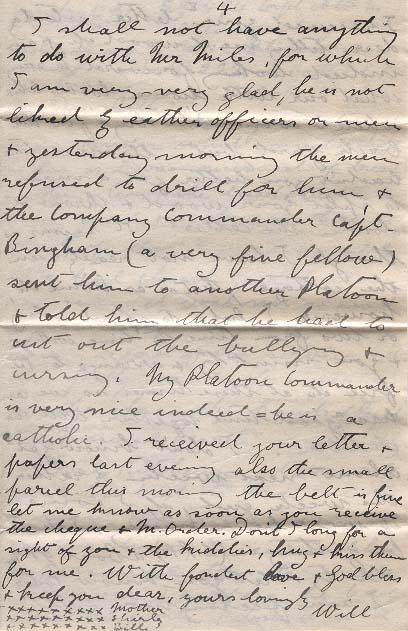 4
I shall not have anything
to do with Mr Miles, for which
I am very very glad, he is not
liked by either officers or men
& yesterday morning the men
refused to drill for him &
the company commander Capt-
Bingham (a very fine fellow)
sent him to another Platoon
& told him that he had to
cut out the bullying &
cursing. My Platoon Commander
is very nice indeed = he is a
catholic. I received your letter &
papers last evening also the small
parcel this morning the belt is fine
let me know as soon as you receive
the cheque & M. Order. Don't I long for a
sight of you & the kiddies, hug & kiss them
for me. With fondest love & God bless
& keep you dear, yours lovingly
Will
xxxxxxxxx Mother
xxxxxxxxx Shirly
xxxxxxxxx Will